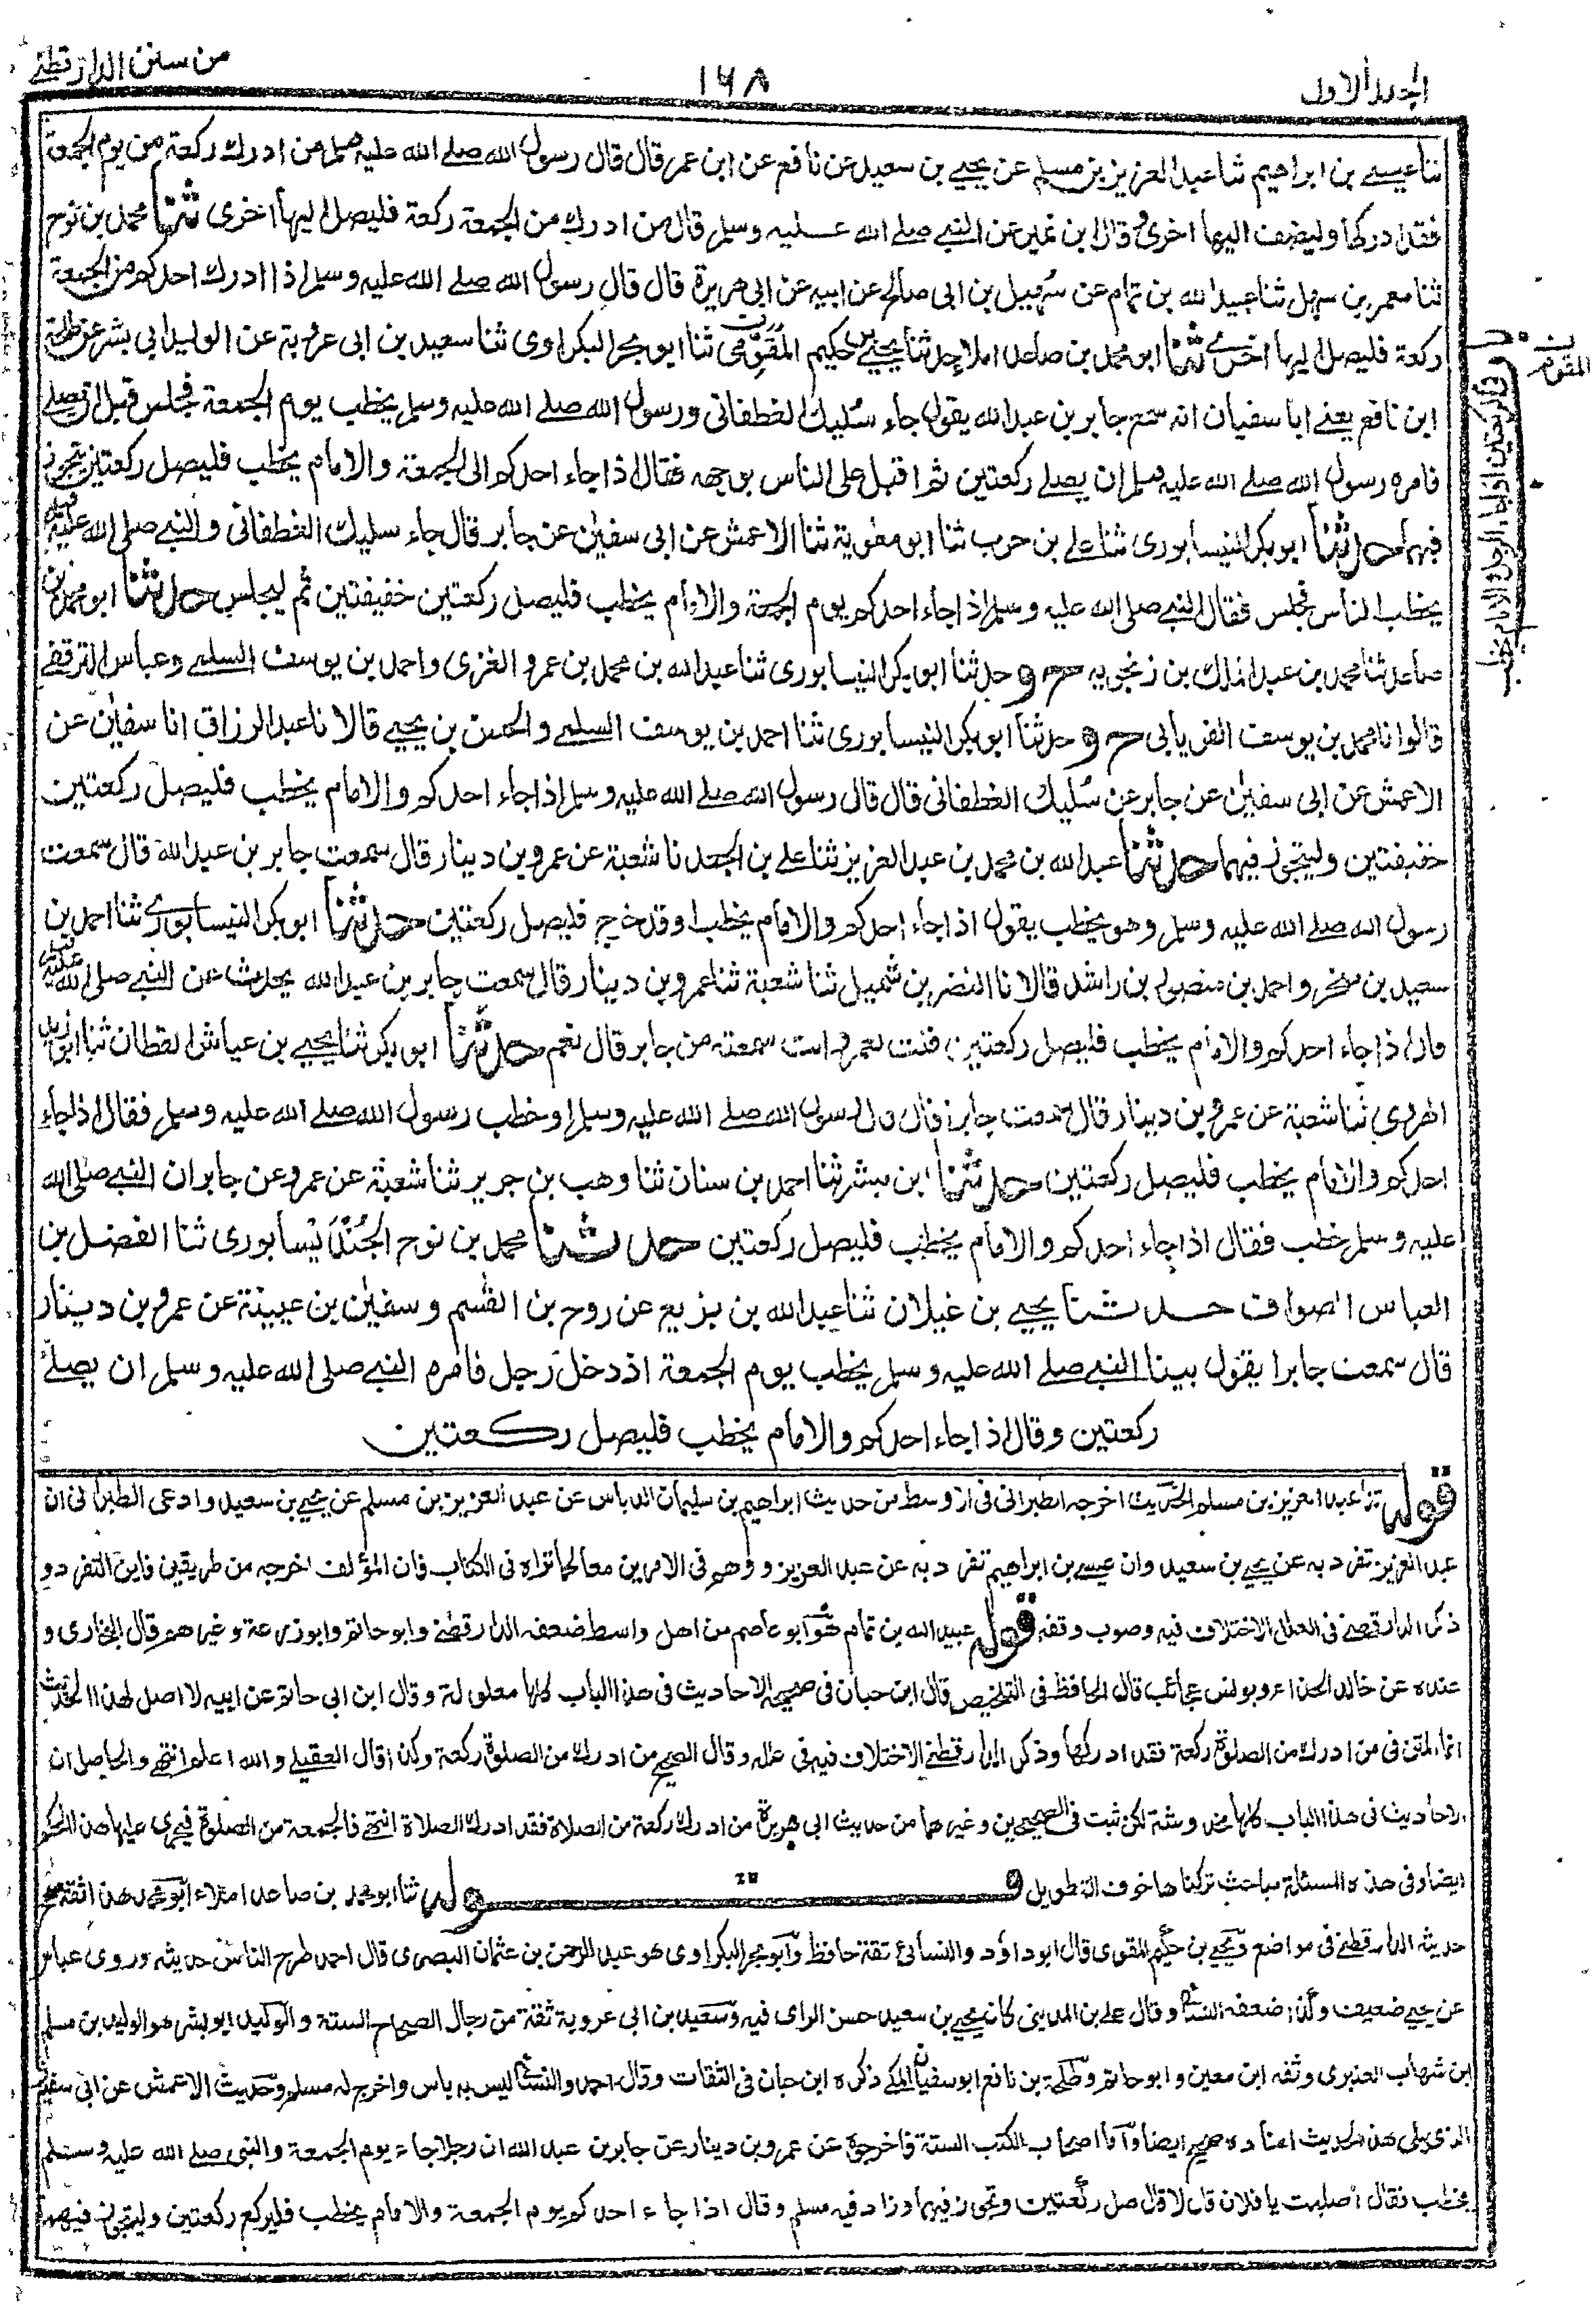 الجلد الاول
١٦٨
من سنن الدارقطنے
ثنا عيسے بن ابراهيم ثنا عبد العزيز بن مسلم عن يحيے بن سعيد عن نافع عن ابن عمر قال قال رسول الله صلے الله عليه وسلم من ادرك ركعة من يوم الجمعة
فقد ادركها وليضف اليها اخرى وقال ابن نمير عن النبے صلے الله عليه وسلم قال من ادرك من الجمعة ركعة فليصل اليها اخرى ثنا محمد بن نوح
ثنا معمر بن سهل ثنا عبيد الله بن تمام عن سُهيل بن ابى صالح عن ابيه عن ابى هريرة قال قال رسول الله صلے الله عليه وسلم اذا ادرك احدكم من الجمعة
ركعة فليصل اليها اخرے ثنا ابن محمد بن صاعد املاء ثنا يحيے بن حكيم المُقَوِّمى ثنا ابو بحر البكراوى ثنا سعيد بن ابى عروبة عن الوليد ابى بشر عن طلحة
ابن نافع يعنے ابا سفيان انه سمع جابر بن عبد الله يقول جاء سُليك الغطفانى ورسول الله صلے الله عليه وسلم يخطب يوم الجمعة فجلس قبل ان يصلے
فامره رسول الله صلے الله عليه وسلم ان يصلے ركعتين ثم اقبل على الناس بوجهه فقال اذا جاء احدكم الى الجمعة والامام يخطب فليصل ركعتين يتجوز
فيهما حدثنا ابو بكر النيسابورى ثنا علے بن حرب ثنا ابو معٰوية ثنا الاعمش عن ابى سفيٰن عن جابر قال جاء سليك الغطفانى والنبے صلى الله عليه وسلم
يخطب الناس فجلس فقال النبے صلى الله عليه وسلم اذا جاء احدكم يوم الجمعة والامام يخطب فليصل ركعتين خفيفتين ثم ليجلس حدثنا ابو محمد بن
صاعد ثنا محمد بن عبد الملك بن زنجويه ح وحدثنا ابو بكر النيسابورى ثنا عبد الله بن محمد بن عمرو الغزى واحمد بن يوسف السلمے وعباس الترقفے
قالوا نا محمد بن يوسف الفريابى ح وحدثنا ابو بكر النيسابورى ثنا احمد بن يوسف السلمے والحسن بن يحيے قالا نا عبد الرزاق انا سفيٰن عن
الاعمش عن ابى سفيٰن عن جابر عن سُليك الغطفانى قال قال رسول الله صلے الله عليه وسلم اذا جاء احدكم والامام يخطب فليصل ركعتين
خفيفتين وليتجوز فيهما حدثنا عبد الله بن محمد بن عبد العزيز ثنا علے بن الجعد نا شعبة عن عمرو بن دينار قال سمعت جابر بن عبد الله قال سمعت
رسول الله صلے الله عليه وسلم وهو يخطب يقول اذا جاء احدكم والامام يخطب او قد خرج فليصل ركعتين حدثنا ابو بكر النيسابورے ثنا احمد بن
سعيد بن صخر واحمد بن منصور بن راشد قالا نا النضر بن شميل ثنا شعبة ثنا عمرو بن دينار قال سمعت جابر بن عبد الله يحدث عن النبے صلى الله عليه وسلم
قال اذا جاء احدكم والامام يخطب فليصل ركعتين فقلت لعمرو انت سمعته من جابر قال نعم حدثنا ابو بكر ثنا يحيے بن عياش القطان ثنا ابو زيد
الهروى ثنا شعبة عن عمرو بن دينار قال سمعت جابرا قال قال رسول الله صلے الله عليه وسلم او خطب رسول الله صلے الله عليه وسلم فقال اذا جاء
احدكم والامام يخطب فليصل ركعتين حدثنا ابن مبشر ثنا احمد بن سنان ثنا وهب بن جرير ثنا شعبة عن عمرو عن جابر ان النبے صلى الله
عليه وسلم خطب فقال اذا جاء احدكم والامام يخطب فليصل ركعتين حدثنا محمد بن نوح الجُنْدَيْسابورى ثنا الفضل بن
العباس الصواف حدثنا يحيے بن غيلان ثنا عبد الله بن بزيع عن روح بن القٰسم وسفيٰن بن عيينة عن عمرو بن دينار
قال سمعت جابرا يقول بينا النبے صلے الله عليه وسلم يخطب يوم الجمعة اذ دخل رجل فامره النبے صلى الله عليه وسلم ان يصلے
ركعتين وقال اذا جاء احدكم والامام يخطب فليصل ركعتين
قوله ثنا عبد العزيز بن مسلم الحديث اخرجه الطبرانى فى الاوسط من حديث ابراهيم بن سليمان الدباس عن عبد العزيز بن مسلم عن يحيے بن سعيد وادعى الطبرانى ان
عبد العزيز تفرد به عن يحيے بن سعيد وان عيسے بن ابراهيم تفرد به عن عبد العزيز ووهم فى الامرين معا لما تراه فى الكتاب فان المؤلف اخرجه من طريقين فاين التفرد و
ذكر الدارقطنے فى العلل الاختلاف فيه وصوب وقفه قوله عبيد الله بن تمام هو ابو عاصم من اهل واسط ضعفه الدارقطنے وابو حاتم وابو زرعة وغيرهم قال البخارى و
عنده عن خالد الحذاء ويونس عجائب قال الحافظ فى التلخيص قال ابن حبان فى صحيحه الاحاديث فى هذا الباب كلها معلولة وقال ابن ابى حاتم عن ابيه لا اصل لهذا الحديث
انما المتن فى من ادرك من الصلوة ركعة فقد ادركها وذكر الدارقطنے الاختلاف فيه فى علله وقال الصحيح من ادرك من الصلوة ركعة وكذا قال العقيلے والله اعلم انتهے والحاصل ان
الاحاديث فى هذا الباب كلها مخدوشة لكن ثبت فى الصحيحين وغيرهما من حديث ابى هريرة من ادرك ركعة من الصلاة فقد ادرك الصلاة انتهے فالجمعة من الصلوة فيجرى عليها هذا الحكم
ايضا وفى هذه المسئلة مباحث تركناها خوف التطويل قوله ثنا ابو محمد بن صاعد املاء ابو محمد هذا ثقة صحح
حديثه الدارقطنے فى مواضع ويحيے بن حكيم المقوى قال ابو داؤد والنسائى ثقة حافظ وابو بحر البكراوى هو عبد الرحمن بن عثمان البصرى قال احمد طرح الناس حديثه وروى عباس
عن يحيے ضعيف وكذا ضعفه النسائى وقال علے بن المدينى كان يحيے بن سعيد حسن الراى فيه وسعيد بن ابى عروبة ثقة من رجال الصحاح الستة والوليد ابو بشر هو الوليد بن مسلم
ابن شهاب العنبرى وثقه ابن معين وابو حاتم وطلحة بن نافع ابو سفيان المكے ذكره ابن حبان فى الثقات وقال احمد والنسائى ليس به باس واخرج له مسلم وحديث الاعمش عن ابى سفيٰن
الذى يلى هذا الحديث اسناده صحيح ايضا واما اصحاب الكتب الستة فاخرجوه عن عمرو بن دينار عن جابر بن عبد الله ان رجلا جاء يوم الجمعة والنبى صلے الله عليه وسلم
يخطب فقال اصليت يا فلان قال لا قال صل ركعتين وتجوز فيهما وزاد فيه مسلم وقال اذا جاء احدكم يوم الجمعة والامام يخطب فليركع ركعتين وليتجوز فيهما
المقوم
فى الركعتين اذا جاء الرجل والامام يخطب